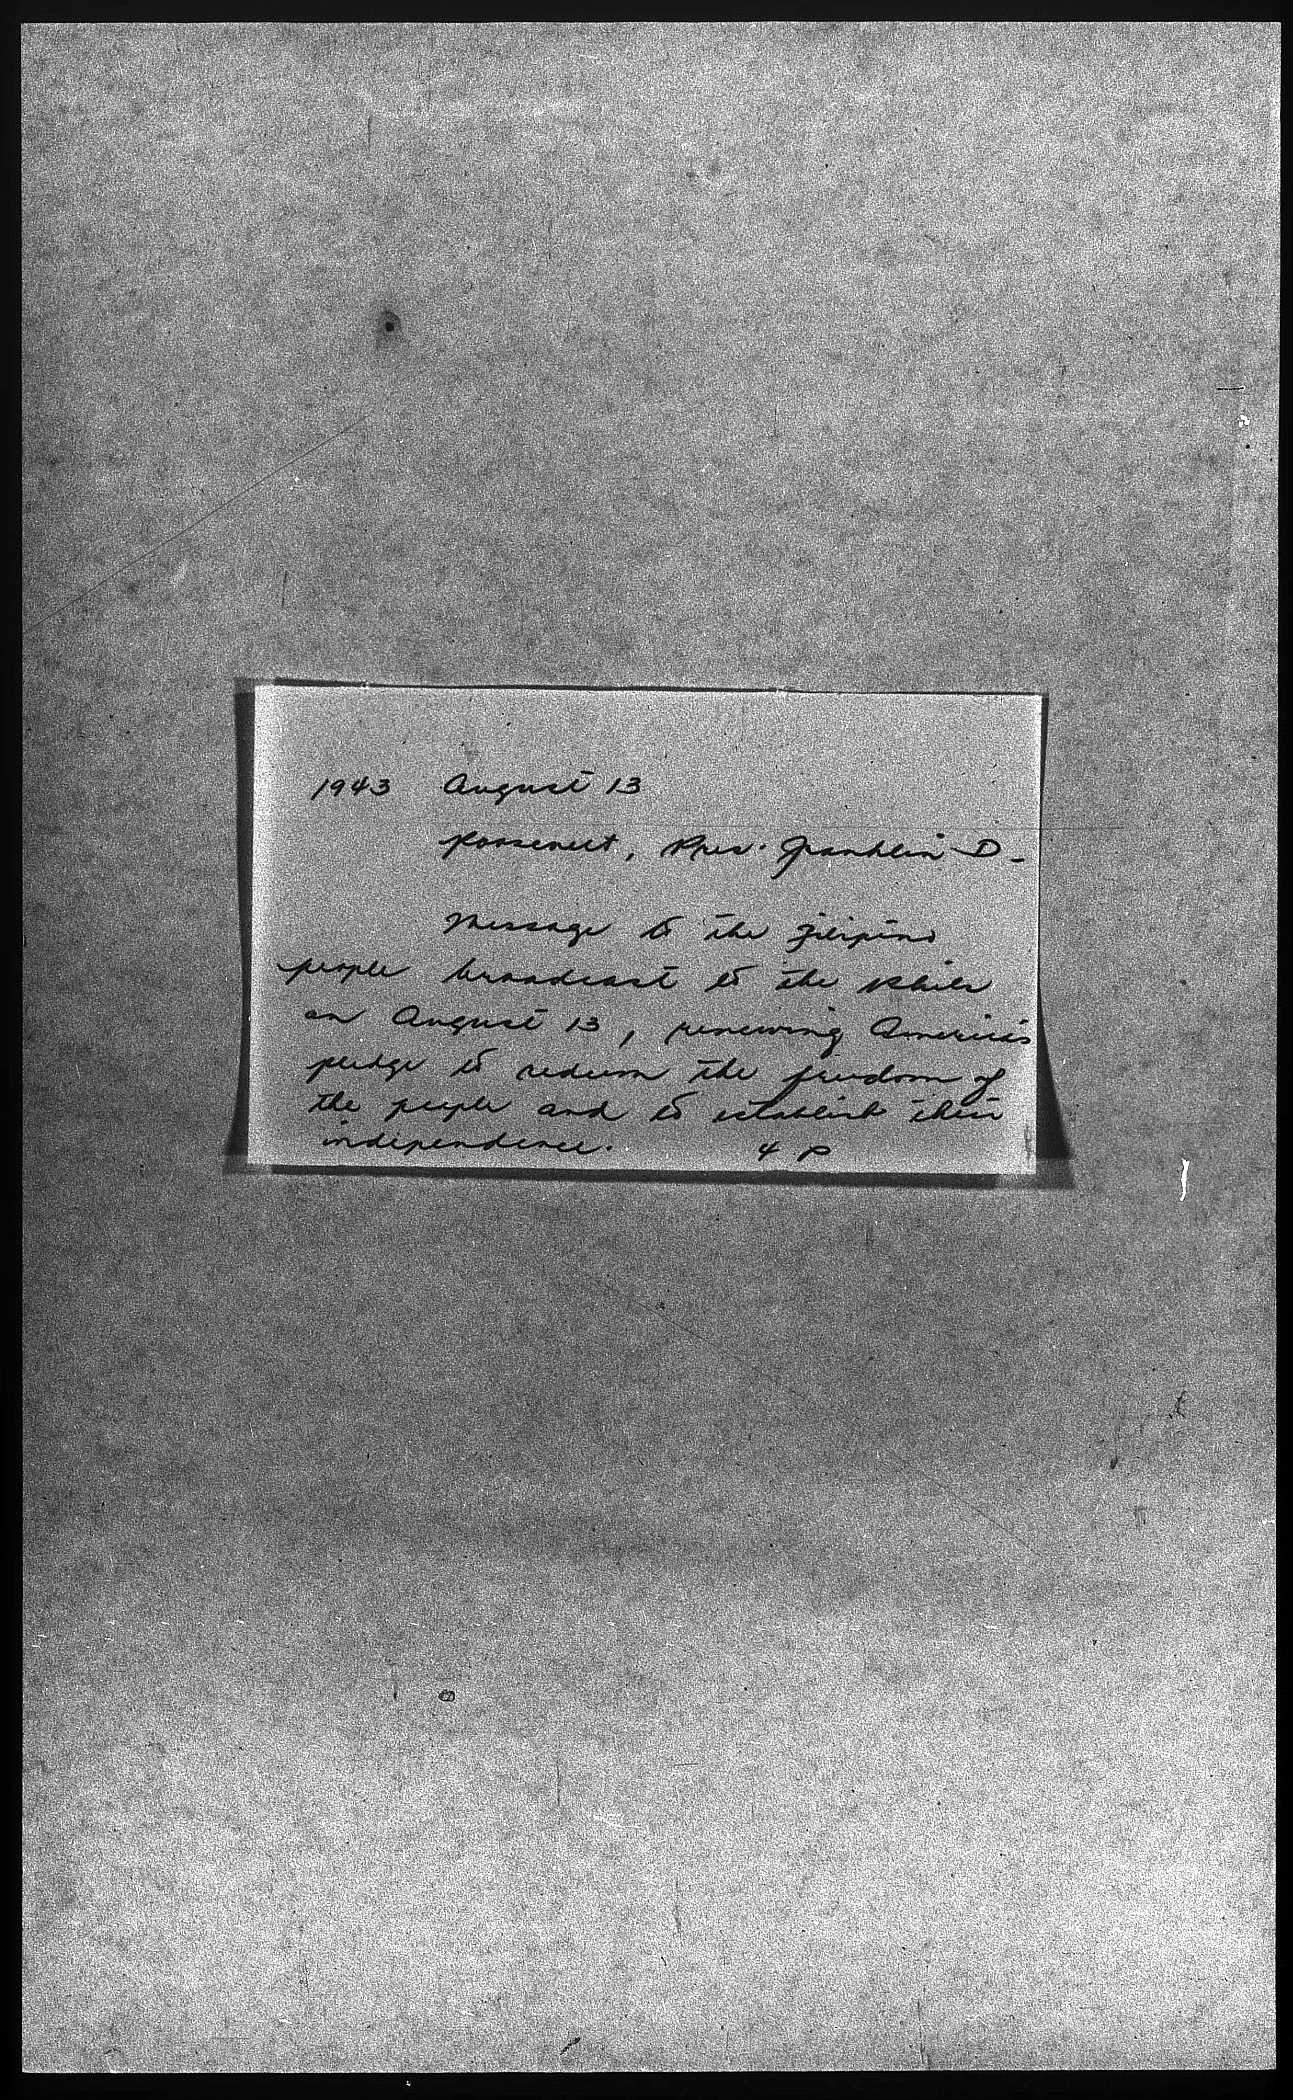 1943 August 13
Roosevelt, Pres. Franklin D.
Message to the Filipino
people broadcast to the Phils
on August 13, renewing America's
pledge to redeem the freedom of
the people and to establish their
independence. 4 p